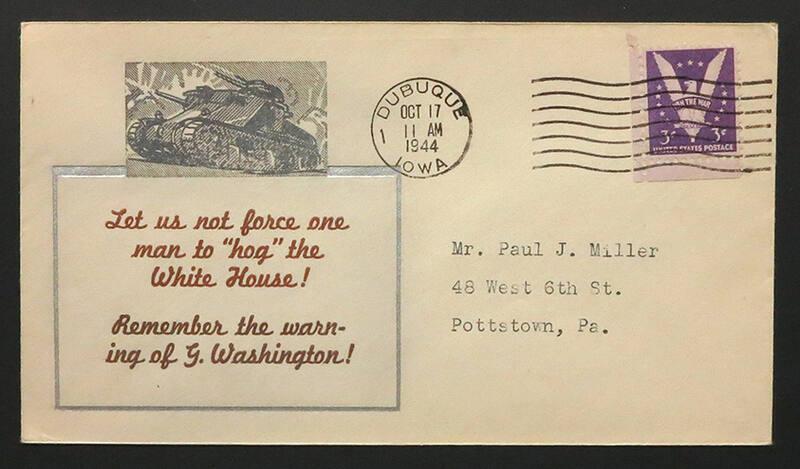 Let us not force one
man to "hog" the
White House!
Remember the warn-
ing of G. Washington!
DUBUQUE
OCT 17
1 11 AM
1944
IOWA
WIN THE WAR
3¢ 3¢
UNITED STATES POSTAGE
Mr. Paul J. Miller
48 West 6th St.
Pottstown, Pa.